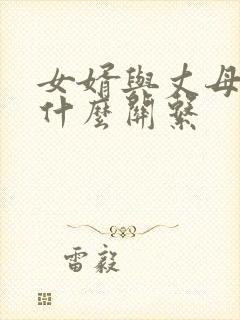 女婿與丈母
什麼關繫
雷毅